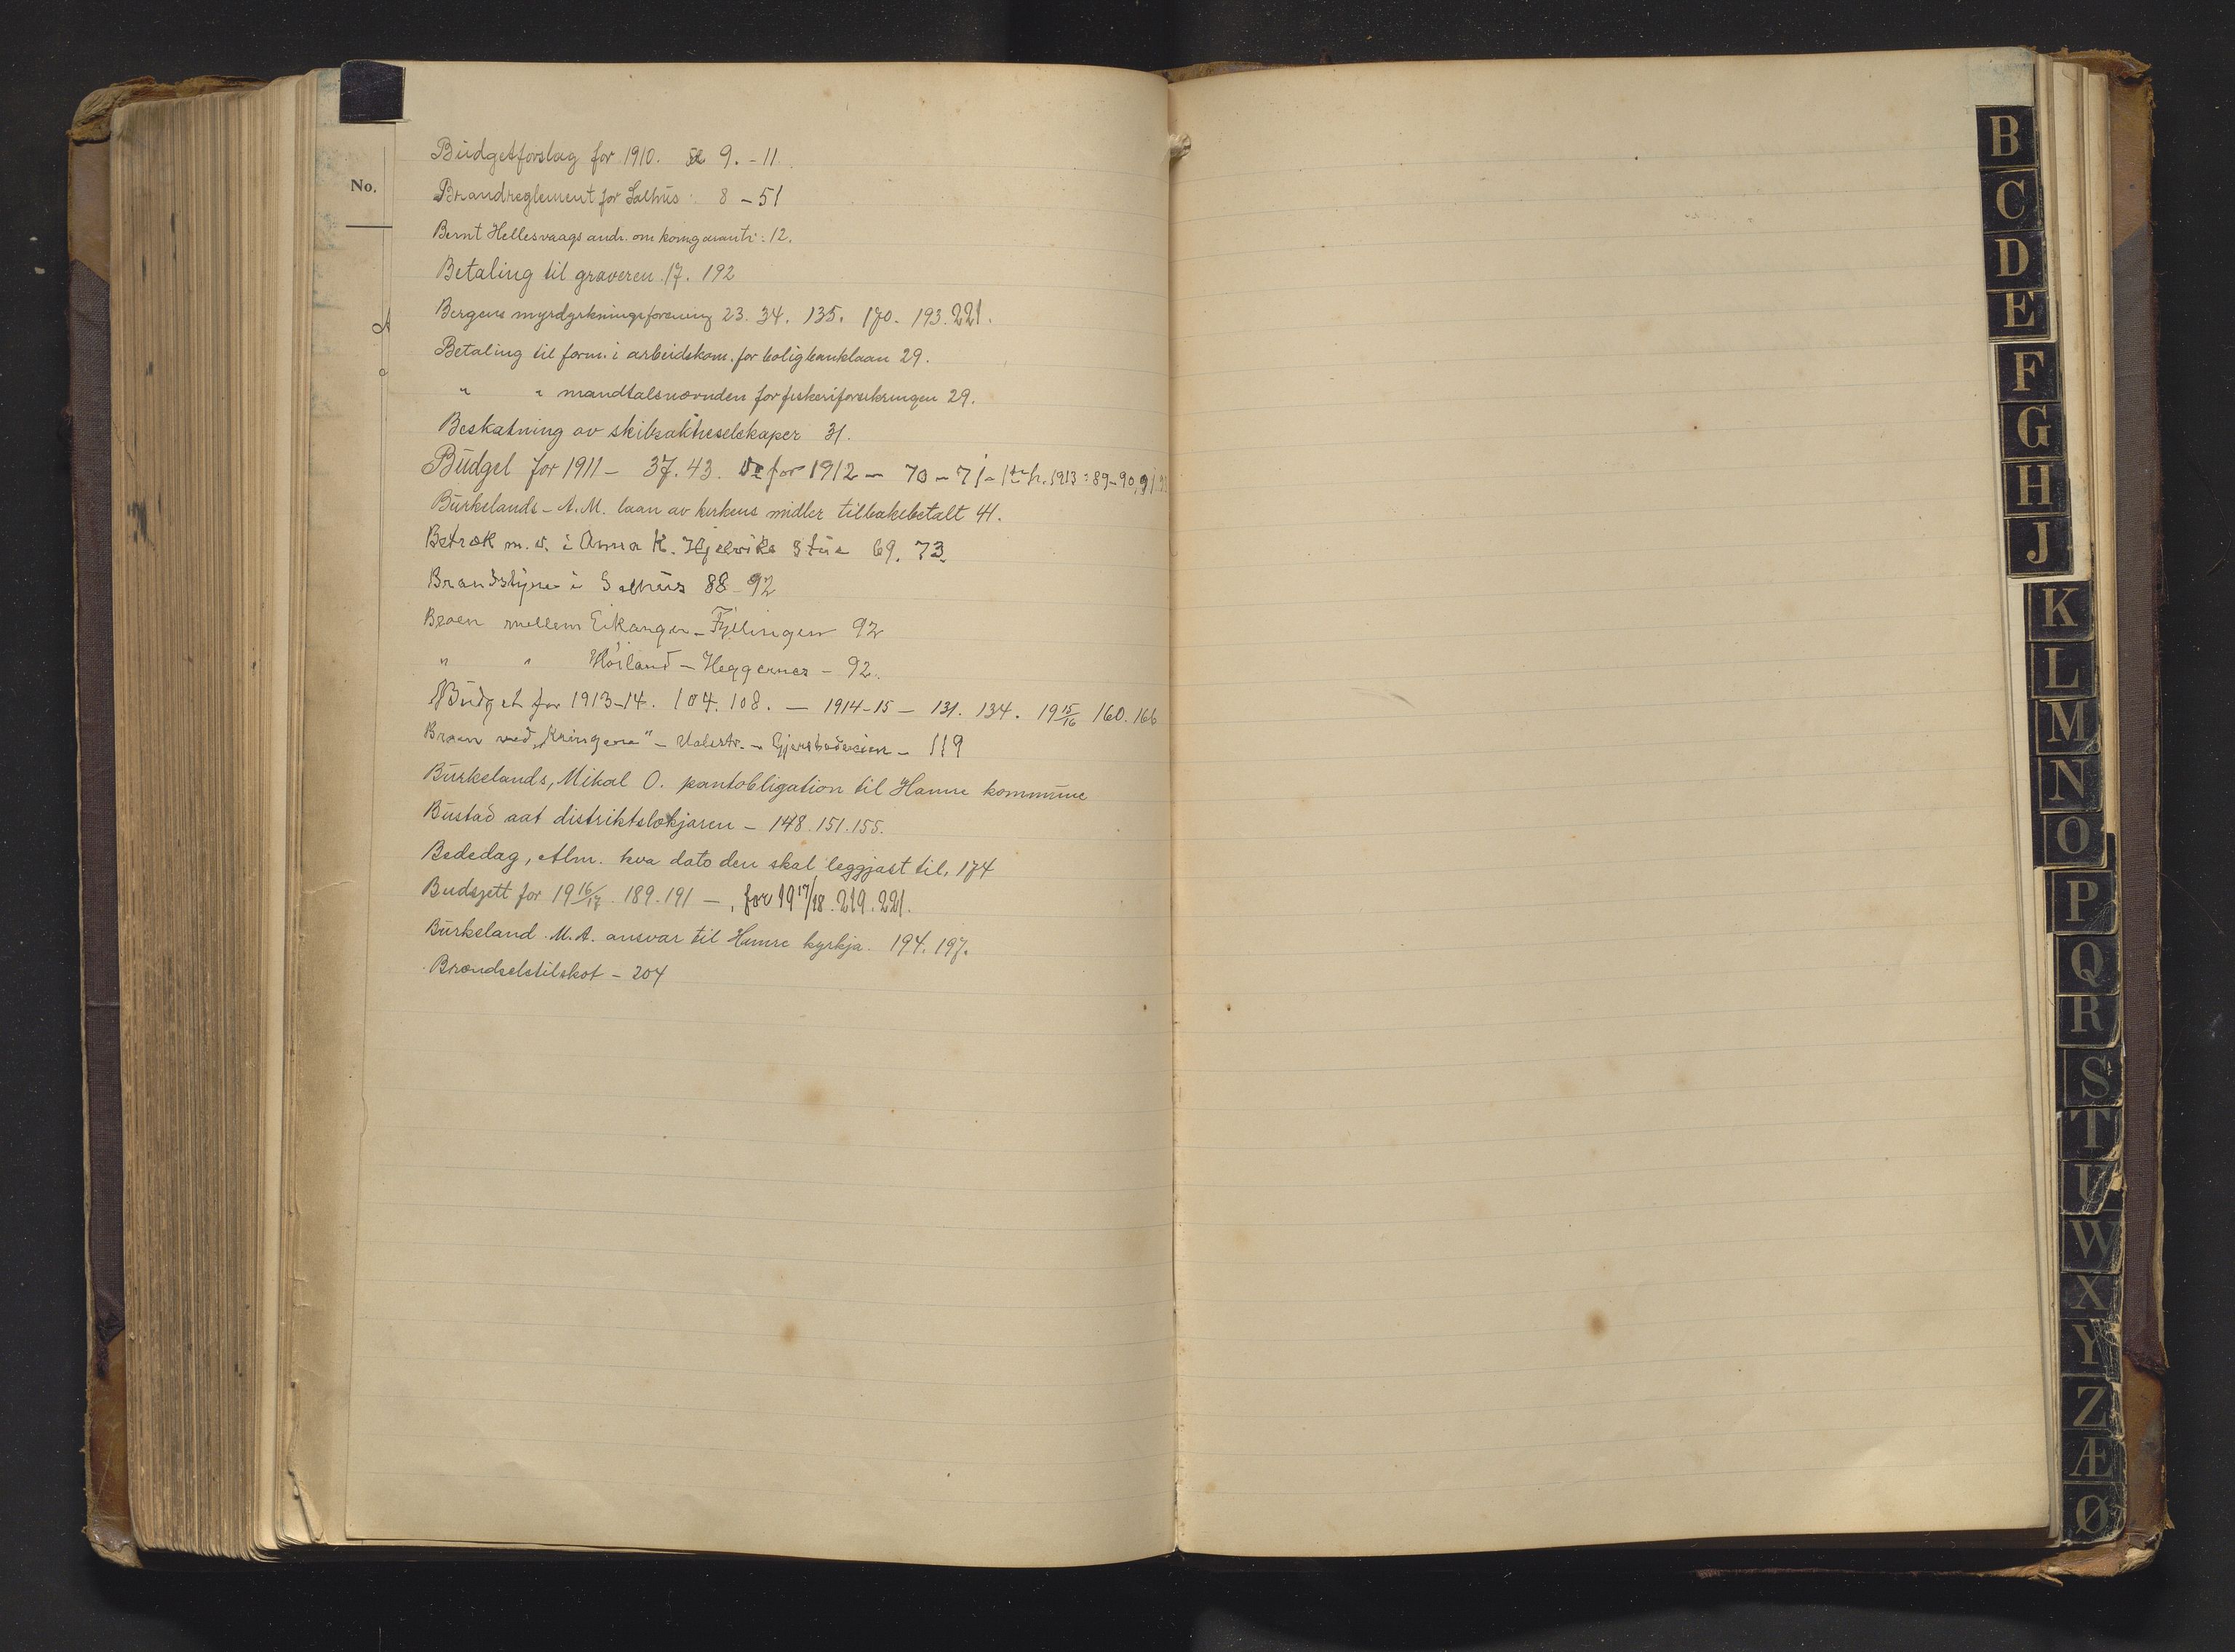 No.
Budgetforslag for 1910. 9. - 11
Brandreglement for Salhus 8 - 51
Bernt Hellesvaags andr. om komgaranti: 12.
Betaling til graveren 17. 192
Bergens myrdyrkningsforening 23. 34. 135. 170. 193. 221.
Betaling til form. i arbeidskom. for boligbanklaan 29.
" " mandtalsnævnden for fiskeriforsikringen 29.
Beskatning av skibsaktieselskaper 31.
Budget for 1911 - 37. 43. for 1912 - 70 - 71 - 1913: 89-90, 91
Burkelands - A. M. laan av kirkens midler tilbakebetalt 41.
Betræk m. v. i Anna K. Hjelviks Stue 69. 73
Brandstyre i Salhus 88 - 92
Broen mellem Eikanger - Fyllingen 92
" " Höiland - Heggernes - 92.
Budget for 1913-14. 104. 108. - 1914-15 - 131. 134. 19 15/16 160. 166
Broen ved „Kringene" - Valestr. - Gjerstadveien - 119
Burkelands, Mikal O. pantobligation til Hamre kommune
Bustad aat distriktslækjaren - 148. 151. 155.
Bededag, Alm. kva dato den skal leggjast til, 174
Budsjett for 19 16/17. 189. 191 - , for 19 17/18. 219. 221.
Burkeland. M. A. ansvar til Hamre kyrkja. 194. 197.
Brændselstilskot - 204
B
C
D
E
F
G
H
J
K
L
M
N
O
P
Q
R
S
T
U
W
X
Y
Z
Æ
Ø